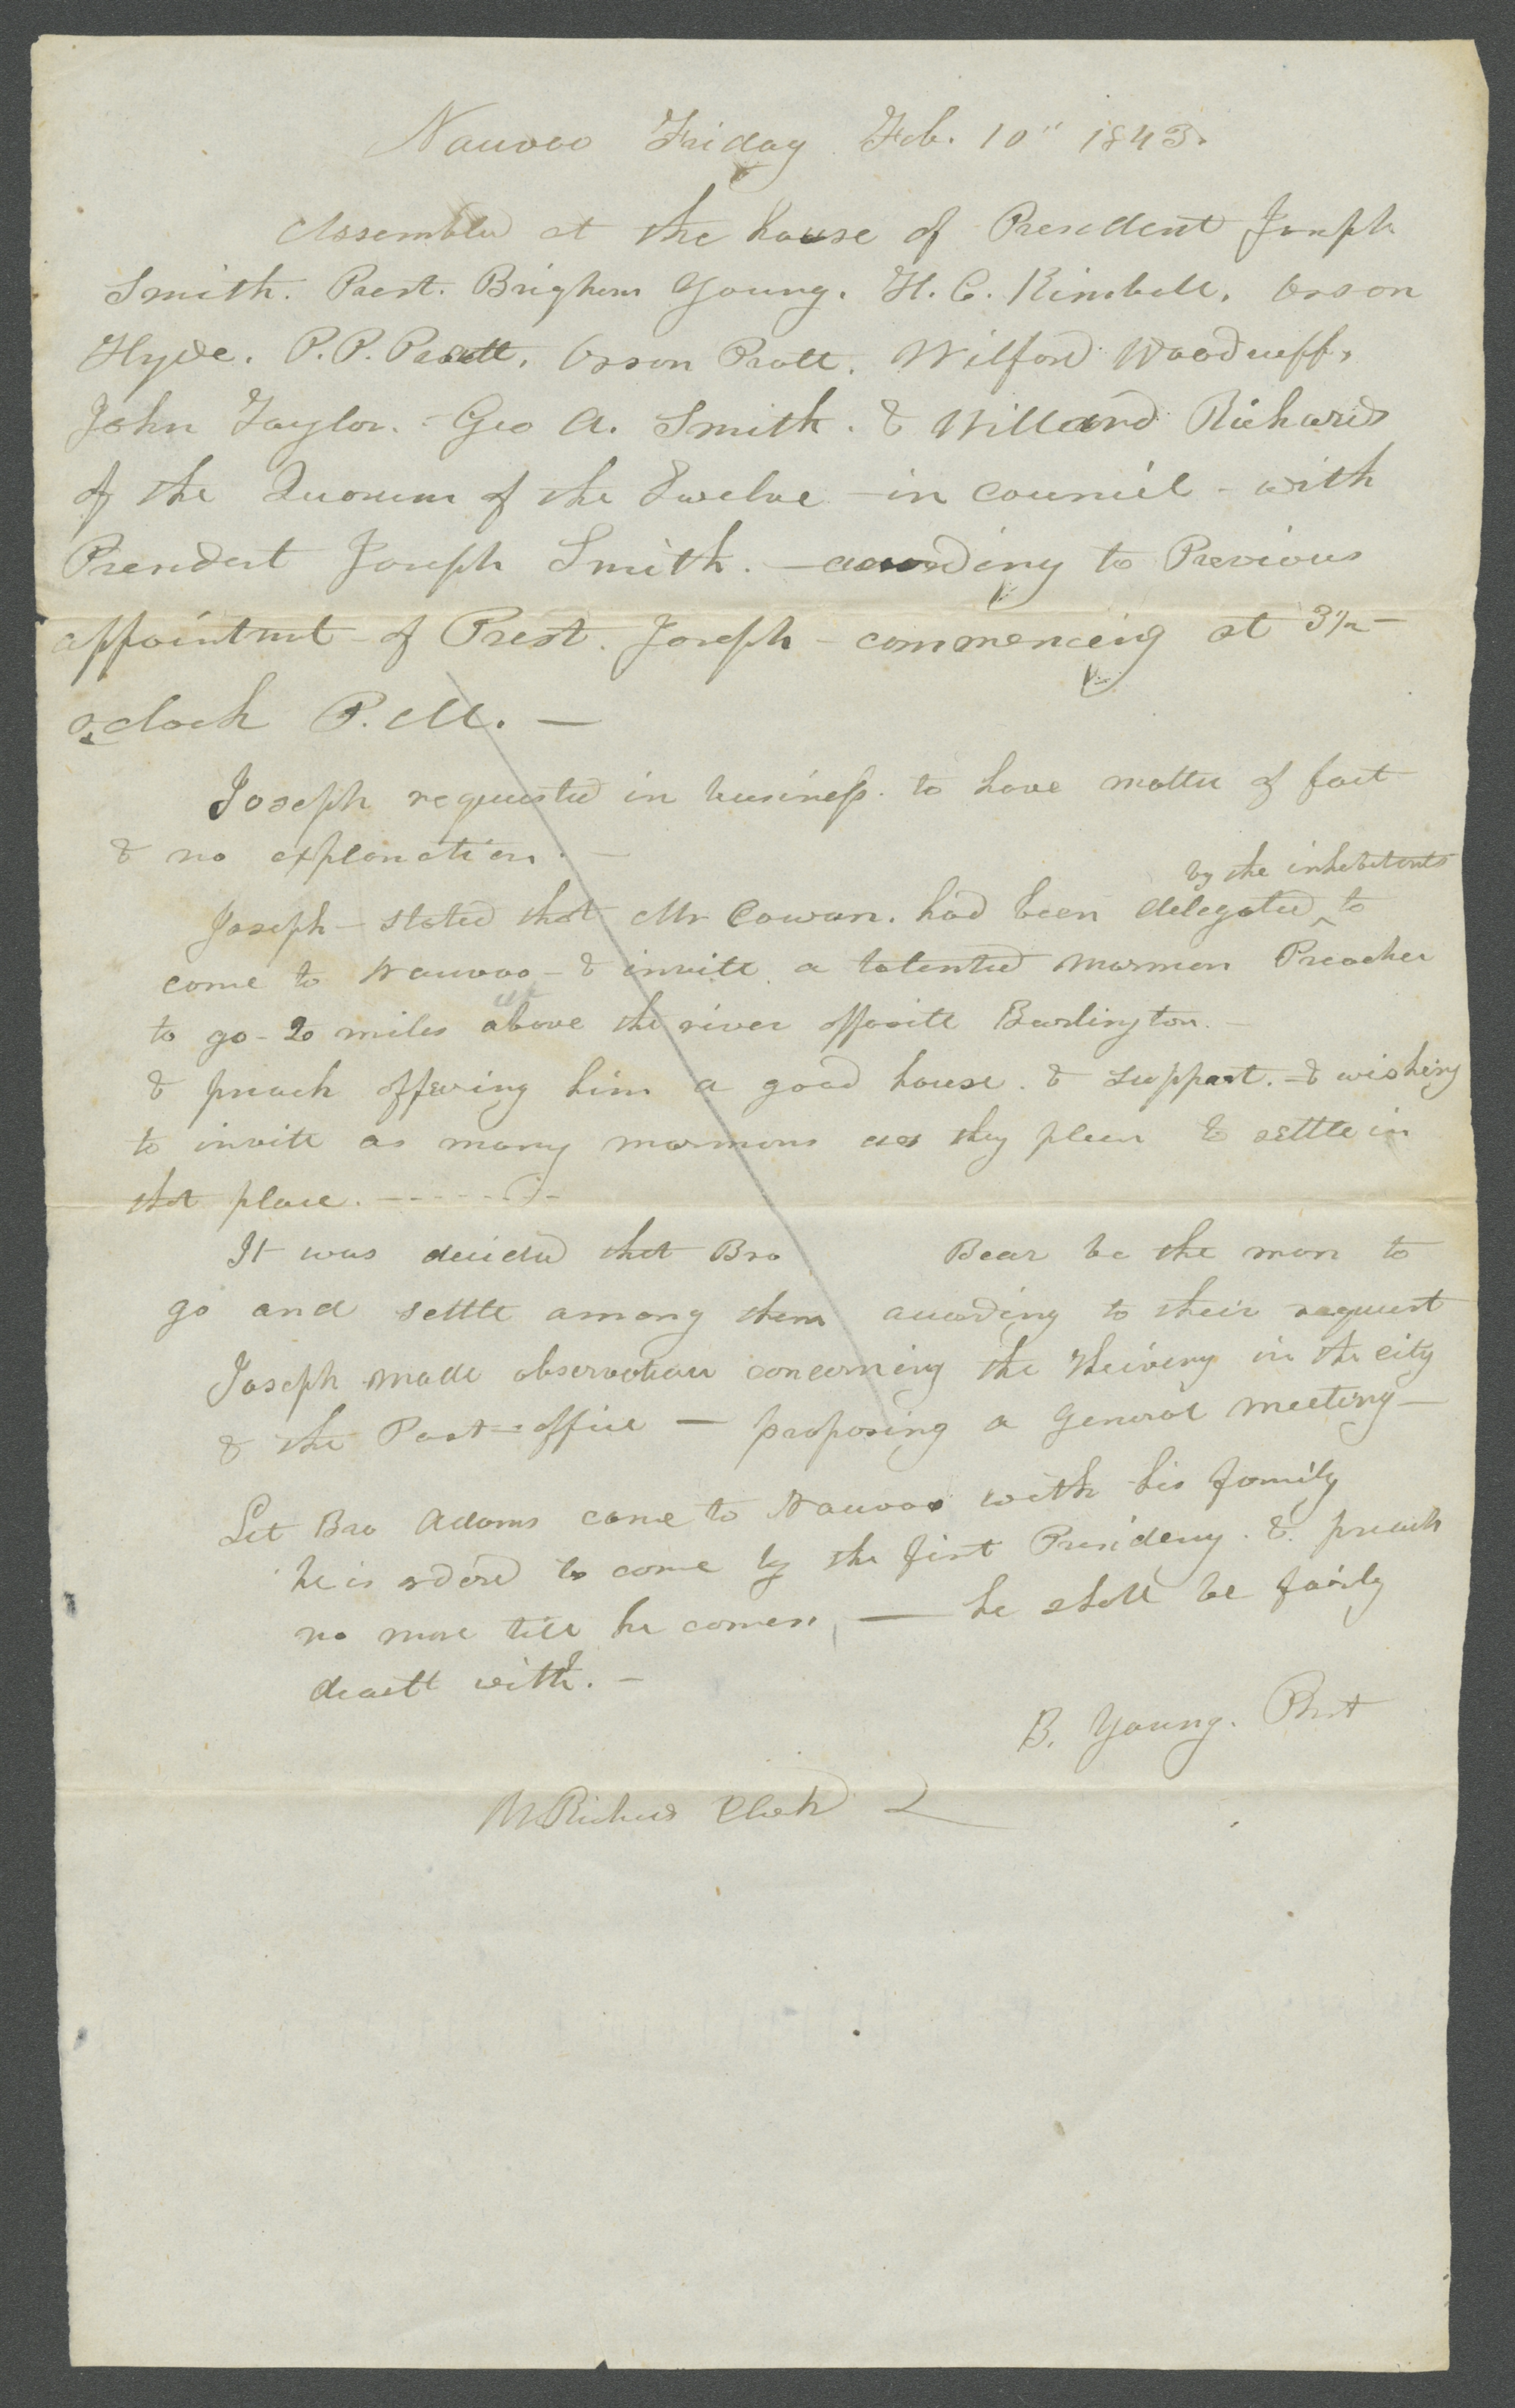 Nauvoo Friday Feb. 10" 1843.
Assembled at the house of President Joseph
Smith. Prest. Brigham Young. H. C. Kimball. Orson
Hyde. P. P. Pratt. Orson Pratt. Wilford Woodruff,
John Taylor. - Geo A. Smith. & Willard Richards
of the Quorum of the Twelve - in council - with
President Joseph Smith. - according to Previous
appointmt - of Prest. Joseph - commenceing at 3 1/2 -
o,clock P. M. -
Joseph requested in business. to have matter of fact
& no explanation. -
by the inhabitants
Joseph - stated that Mr Cowan. had been delegated ^ to
come to Nauvoo - & invite a talented mormon Preacher
to go - 20 miles above the river opposite Burlington. -
& preach offering him a good house. & support. - & wishing
to invite as many mormons as they please to settle in
that place. - - - - - - - -
It was decided that Bro Bear be the man to
go and settle among them according to their request
Joseph made observation concerning the thieving in the city
& the Post-office - proposing a General meeting -
Let Bro Adams come to Nauvoo with his family
he is orderd to come by the first Presidency. & preach
no more till he comes, - he shall be fairly
dealt with. -
B. Young. Prst
W Richards Clerk